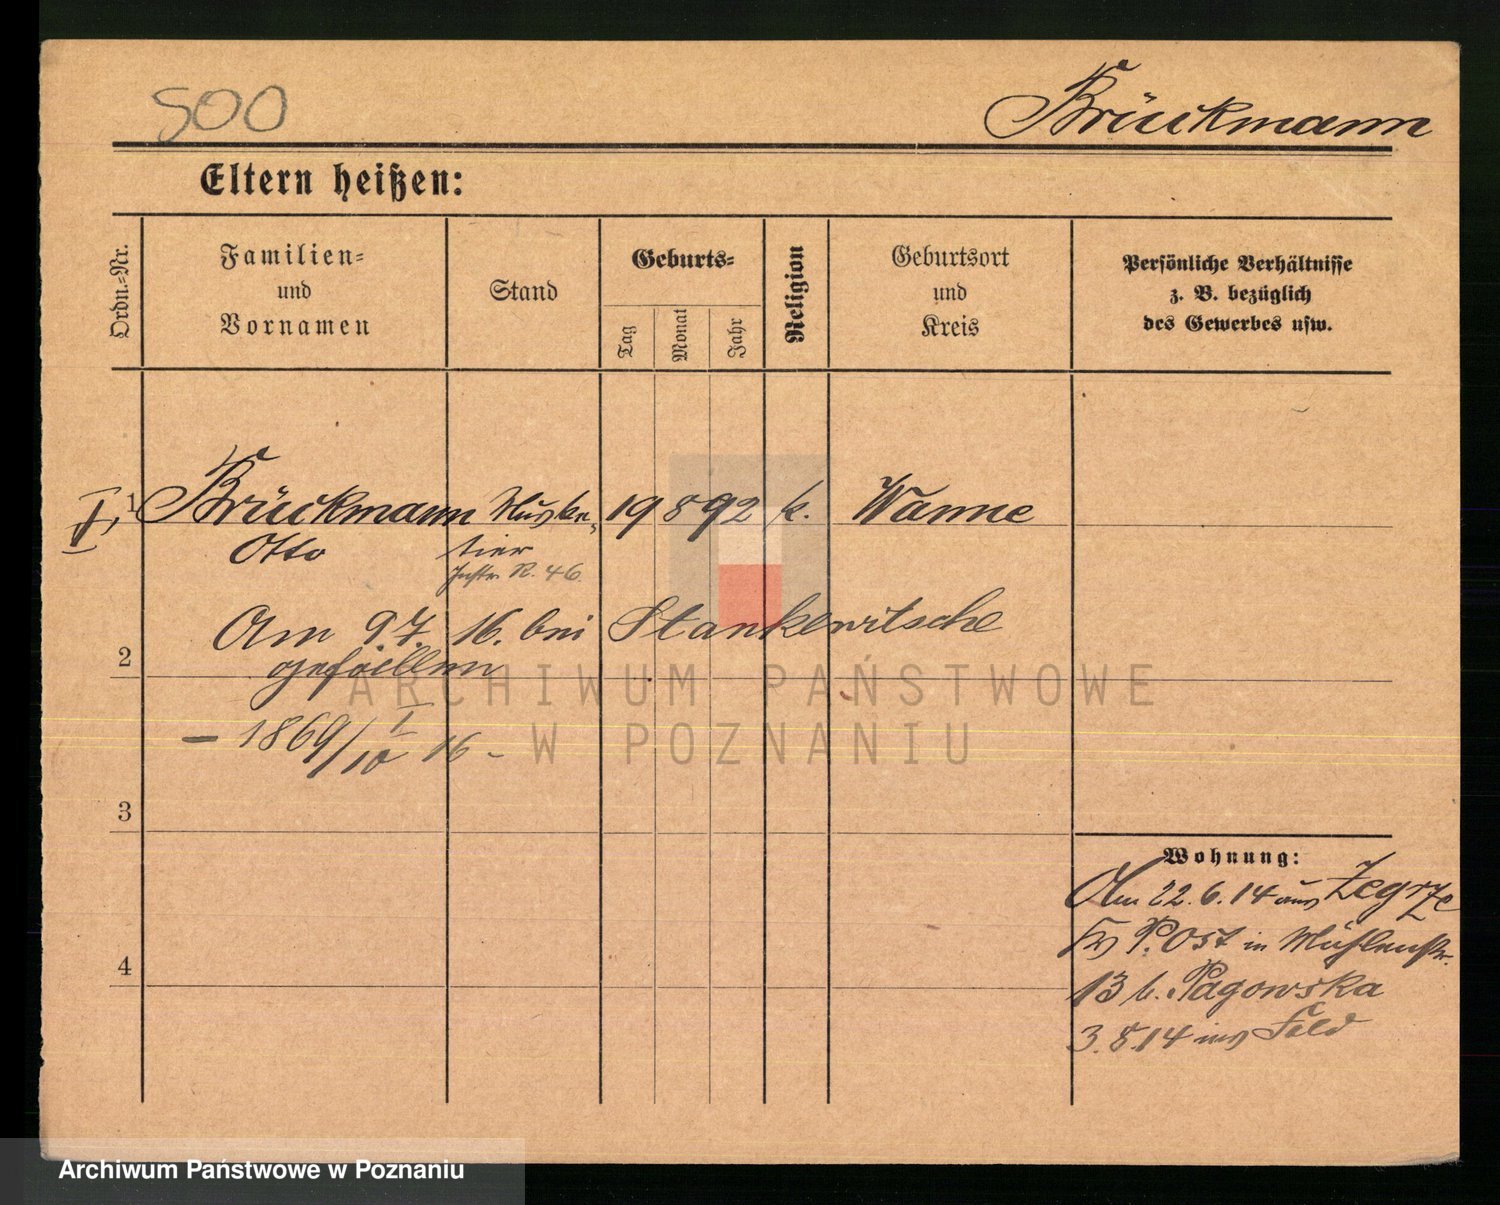 500
Brückmann
Eltern heißen:
Ordn.-Nr.
Familien-
und
Vornamen
Stand
Geburts-
Tag
Monat
Jahr
Religion
Geburtsort
und
Kreis
Persönliche Verhältnisse
z. B. bezüglich
des Gewerbes usw.
1 Brückmann Muske- 19 8 92 k. Wanne
Otto tier
Inftr. R. 46
Am 9.7. 16. bei Stankewitsche
2
gefallen
ARCHIWUM PAŃSTWOWE
W POZNANIU
- 1869/10 I 16 -
3
4
Wohnung:
Am 22.6.14 aus Zegrze
Kr P. Ost in Mühlenstr.
13 b. Pagowska
3.8.14 ins Feld
Archiwum Państwowe w Poznaniu